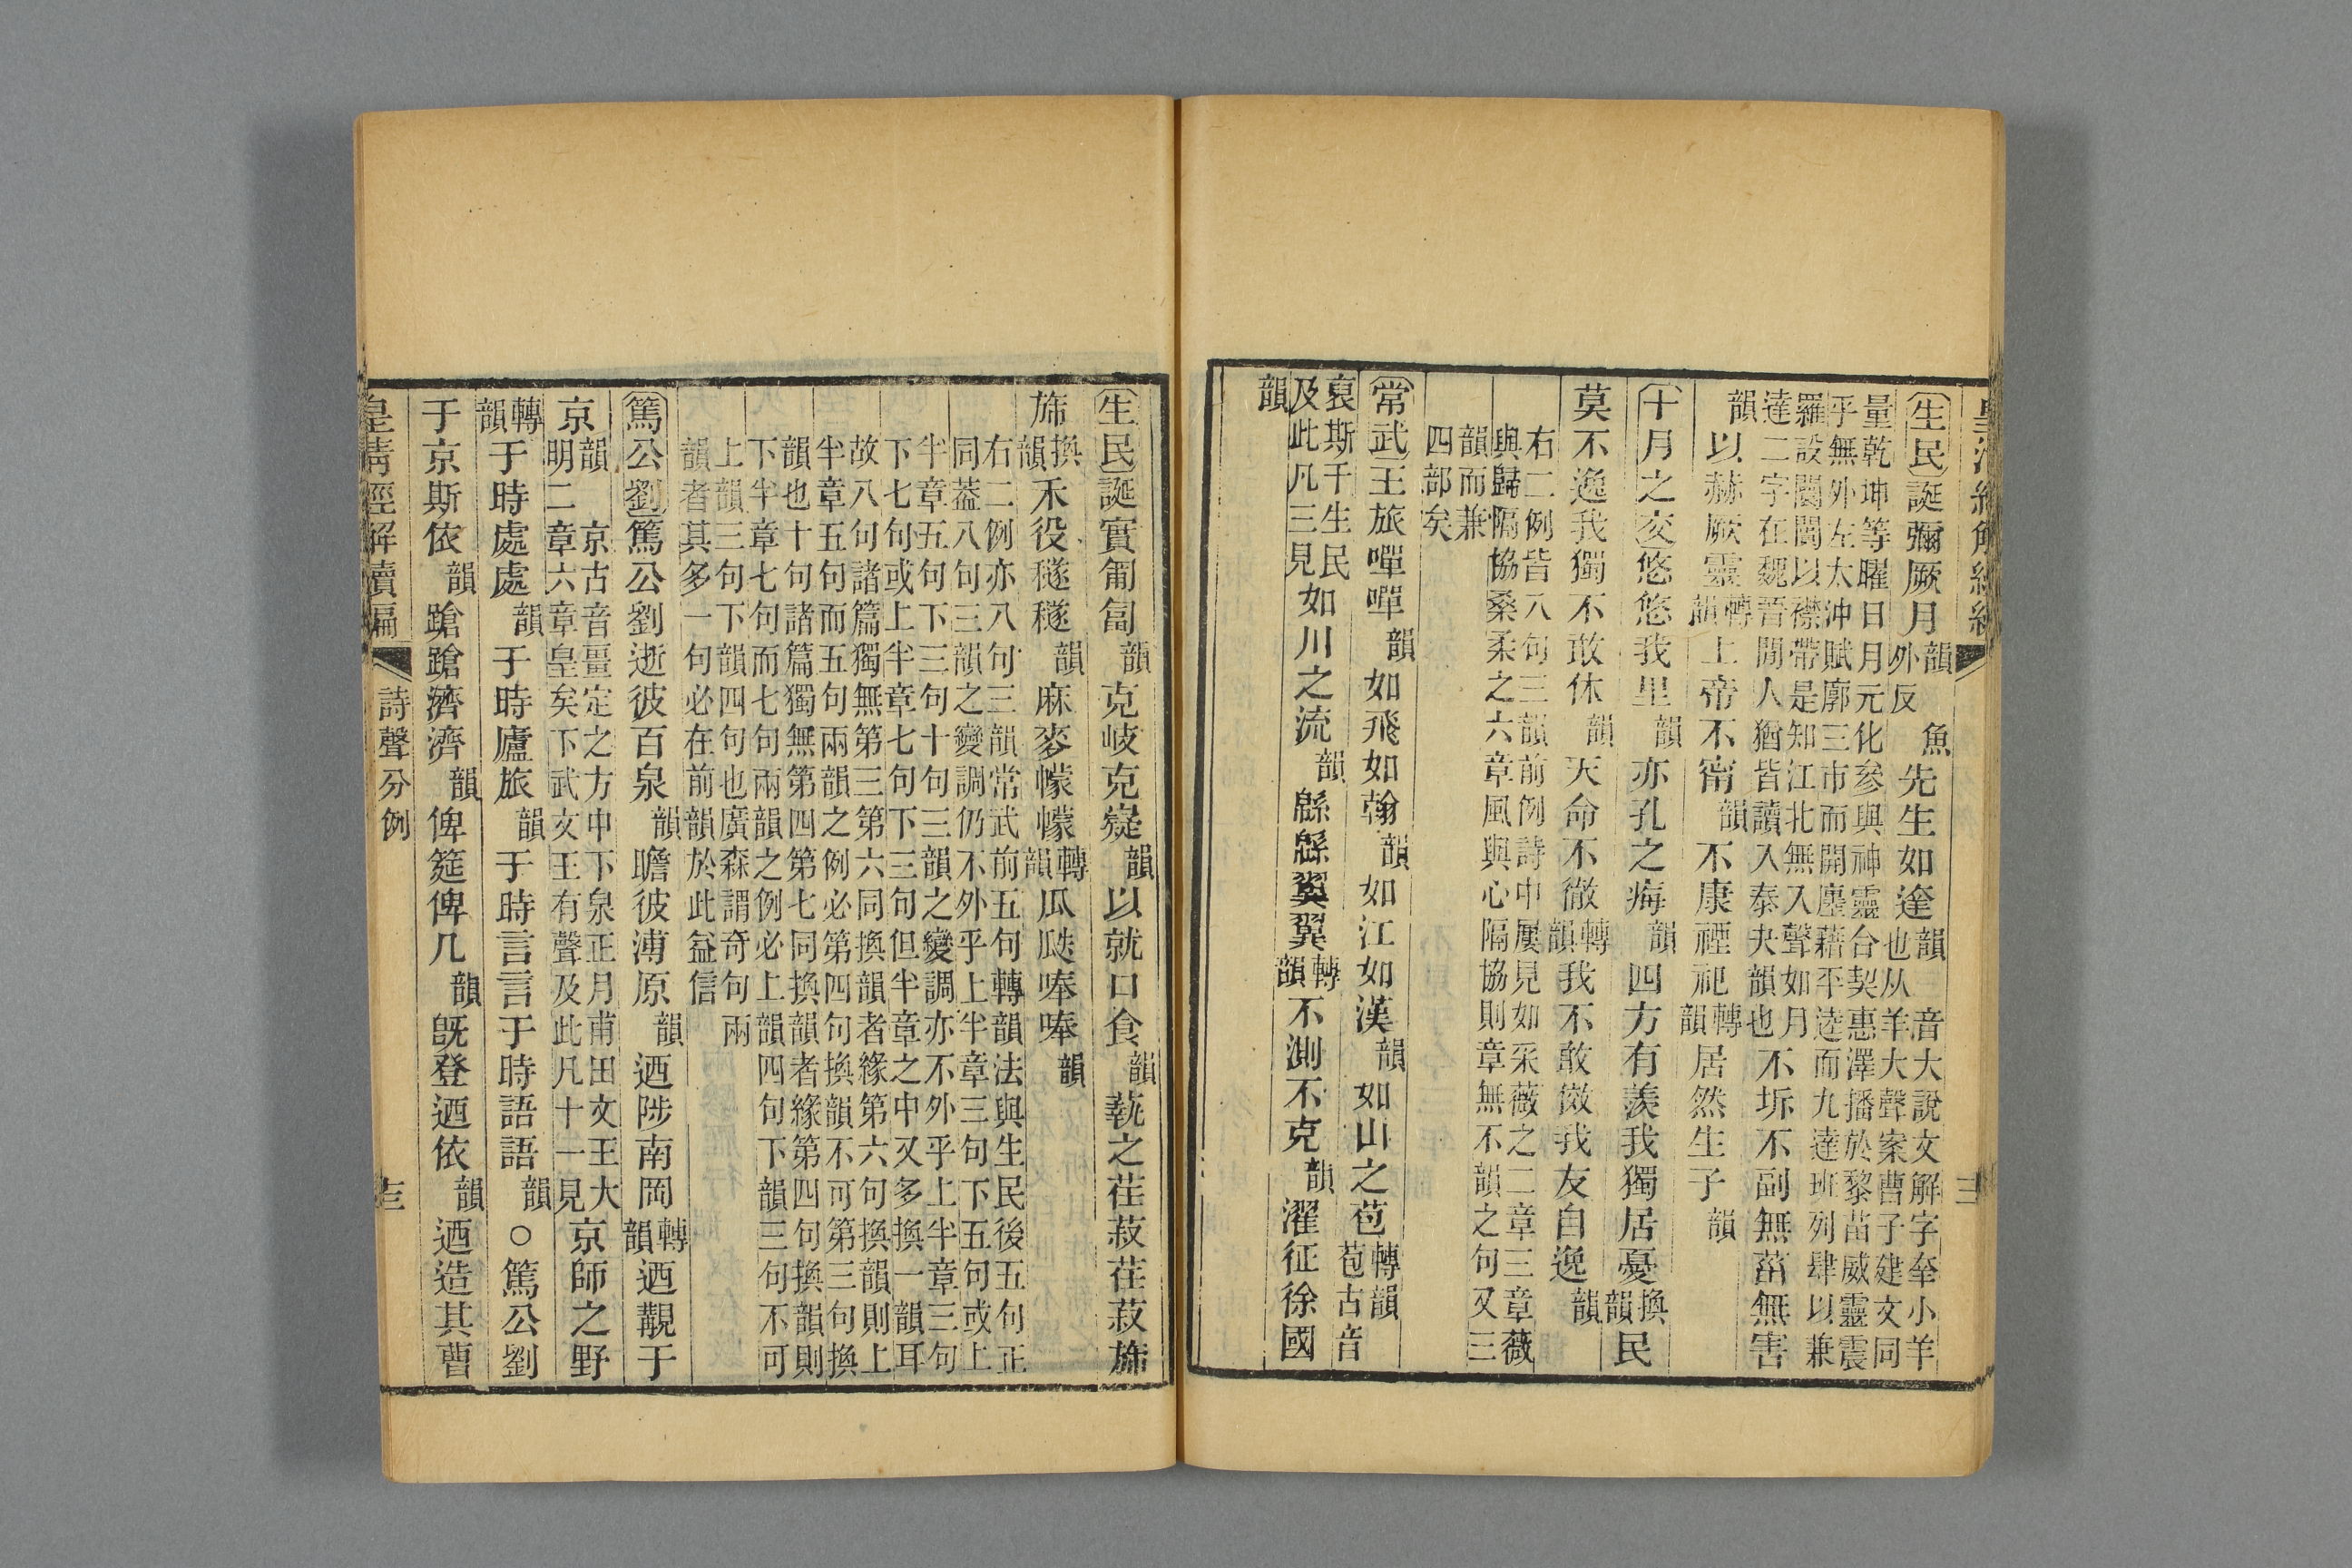 皇清經解續編
三
生民誕彌厥月韻外反魚先生如達韻也从羊大聲案曹子建文同音大說文解字羍小羊
量乾坤等曜日月元化參與神靈台契惠澤播於黎苗威靈震
乎無外左太沖賦廓三市而開廛藉平逵而九達班列肆以兼
羅設闤闠以襟帶是知江北無入聲如月
達二字在魏晉閒人猶皆讀入泰夬韻也不坼不副無菑無害
韻以赫厥靈轉韻上帝不甯韻不康禋祀轉韻居然生子韻
十月之交悠悠我里韻亦孔之痗韻四方有羨我獨居憂換韻民
莫不逸我獨不敢休韻天命不徹轉韻我不敢傚我友自逸韻
右二例皆八句三韻前例詩中屢見如采薇之二章三章薇
與歸隔協桑柔之六章風與心隔協則章無不韻之句又三
韻而兼
四部矣
常武王旅嘽嘽韻如飛如翰韻如江如漢韻如山之苞轉韻苞古音
裒斯干生民
及此凡三見如川之流韻緜緜翼翼轉韻不測不克韻濯征徐國
韻
生民誕實匍匐韻克岐克嶷韻以就口食韻蓺之荏菽荏菽旆
旆換韻禾役穟穟韻麻麥幪幪轉韻瓜瓞唪唪韻
右二例亦八句三韻常武前五句轉韻法與生民後五句正
同葢八句三韻之變調仍不外乎上半章三句下五句或上
半章五句下三句十句三韻之變調亦不外乎上半章三句
下七句或上半章七句下三句但半章之中又多換一韻耳
故八句諸篇獨無第三第六同換韻者緣第六句換韻則上
半章五句而五句兩韻之例必第四句換韻不可第三句換
韻也十句諸篇獨無第四第七同換韻者緣第四句換韻則
下半章七句而七句兩韻之例必上韻四句下韻三句不可
上韻三句下韻四句也廣森謂奇句兩
韻者其多一句必在前韻於此益信
篤公劉篤公劉逝彼百泉韻瞻彼溥原韻迺陟南岡轉韻迺覯于
京韻京古音畺定之方中下泉正月甫田文王大
明二章六章皇矣下武文王有聲及此凡十一見京師之野
轉韻于時處處韻于時廬旅韻于時言言于時語語韻○篤公劉
于京斯依韻蹌蹌濟濟韻俾筵俾几韻旣登迺依韻迺造其曹
皇清經解續編
詩聲分例